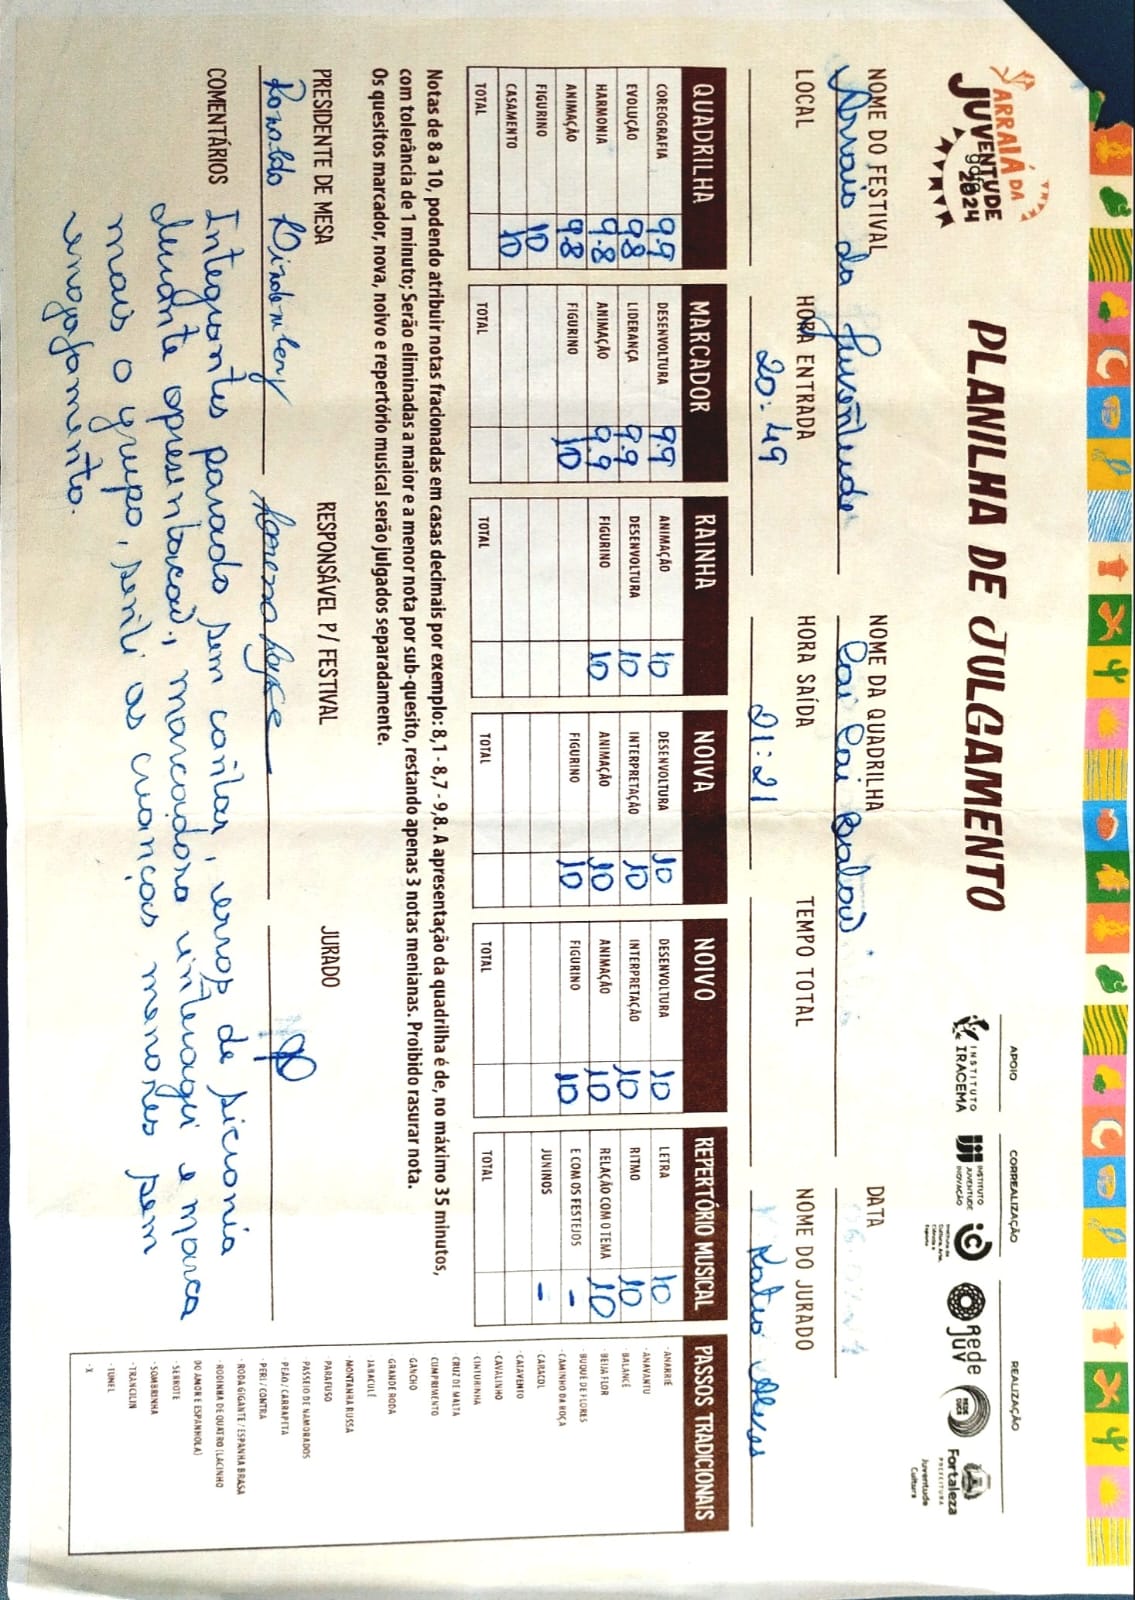 ARRAIÁ DA
JUVENTUDE
2024
PLANILHA DE JULGAMENTO
APOIO
INSTITUTO
IRACEMA
CORREALIZAÇÃO
INSTITUTO
JUVENTUDE
INOVAÇÃO
REALIZAÇÃO
Rede
JUV
Fortaleza
PREFEITURA
Juventude
Cultura
NOME DO FESTIVAL
Arraio da Juventude
NOME DA QUADRILHA
Cai Cai Balão
DATA
LOCAL
HORA ENTRADA
20:49
HORA SAÍDA
21:21
TEMPO TOTAL
NOME DO JURADO
Katia Alves
QUADRILHA
COREOGRAFIA 9.9
EVOLUÇÃO 9.8
HARMONIA 9.8
ANIMAÇÃO 9.8
FIGURINO 10
CASAMENTO 10
TOTAL
MARCADOR
DESENVOLTURA 9.9
LIDERANÇA 9.9
ANIMAÇÃO 9.9
FIGURINO 10
TOTAL
RAINHA
ANIMAÇÃO 10
DESENVOLTURA 10
FIGURINO 10
TOTAL
NOIVA
DESENVOLTURA 10
INTERPRETAÇÃO 10
ANIMAÇÃO 10
FIGURINO 10
TOTAL
NOIVO
DESENVOLTURA 10
INTERPRETAÇÃO 10
ANIMAÇÃO 10
FIGURINO 10
TOTAL
REPERTÓRIO MUSICAL
LETRA 10
RITMO 10
RELAÇÃO COM O TEMA 10
E COM OS FESTEJOS -
JUNINOS -
TOTAL
PASSOS TRADICIONAIS
· ANARRIÊ
· ANAVANTU
· BALANCÊ
· BEIJA FLOR
· BUQUÊ DE FLORES
· CAMINHO DA ROÇA
· CARACOL
· CATAVENTO
· CAVALINHO
· CINTURINHA
CRUZ DE MALTA
CUMPRIMENTO
GANCHO
GRANDE RODA
JABACULÊ
· MONTANHA RUSSA
PARAFUSO
PASSEIO DE NAMORADOS
· PEÃO / CARRAPITA
· PERI / CONTRA
· RODA GIGANTE / ESPANHA BRASA
· RODINHA DE QUATRO (LACINHO
DO AMOR E ESPANHOLA)
· SERROTE
· SOMBRINHA
· TRANCELIN
· TUNEL
· X
Notas de 8 a 10, podendo atribuir notas fracionadas em casas decimais por exemplo: 8,1 - 8,7 - 9,8. A apresentação da quadrilha é de, no máximo 35 minutos,
com tolerância de 1 minuto; Serão eliminadas a maior e a menor nota por sub-quesito, restando apenas 3 notas menianas. Proibido rasurar nota.
Os quesitos marcador, nova, noivo e repertório musical serão julgados separadamente.
PRESIDENTE DE MESA
Ronaldo
RESPONSÁVEL P/ FESTIVAL
JURADO
COMENTÁRIOS
Integrantes parado sem cantar, erros de sicronia
durante apresentacaõ, marcadora interagi e marca
mais o grupo, senti as crianças menores sem
engajamento.